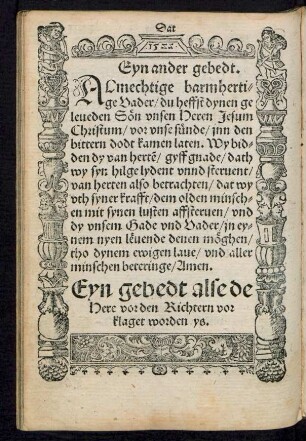 Dat
1522
Eyn ander gebedt.
ALmechtige barmherti-
ge Vader/du heffst dynen ge
leueden Sön vnsen Heren Jesum
Christum/vor vnse sünde/jnn den
bittern dodt kamen laten. Wy bid-
den dy van hertē/gyff gnade/dath
wy syn hilge lydent vnnd steruent/
van herten also betrachten/dat wy
vth syner kraffte/dem olden minsch-
en mit synen lusten affsteruen/vnd
dy vnsem Gade vnd Vader/jn ey-
nem nyen leuende denen möghen/
tho dynem ewigen laue/vnd aller
minschen beteringe/Amen.
Eyn gebedt alse de
Here vor den Richtern vor
klaget worden ys.